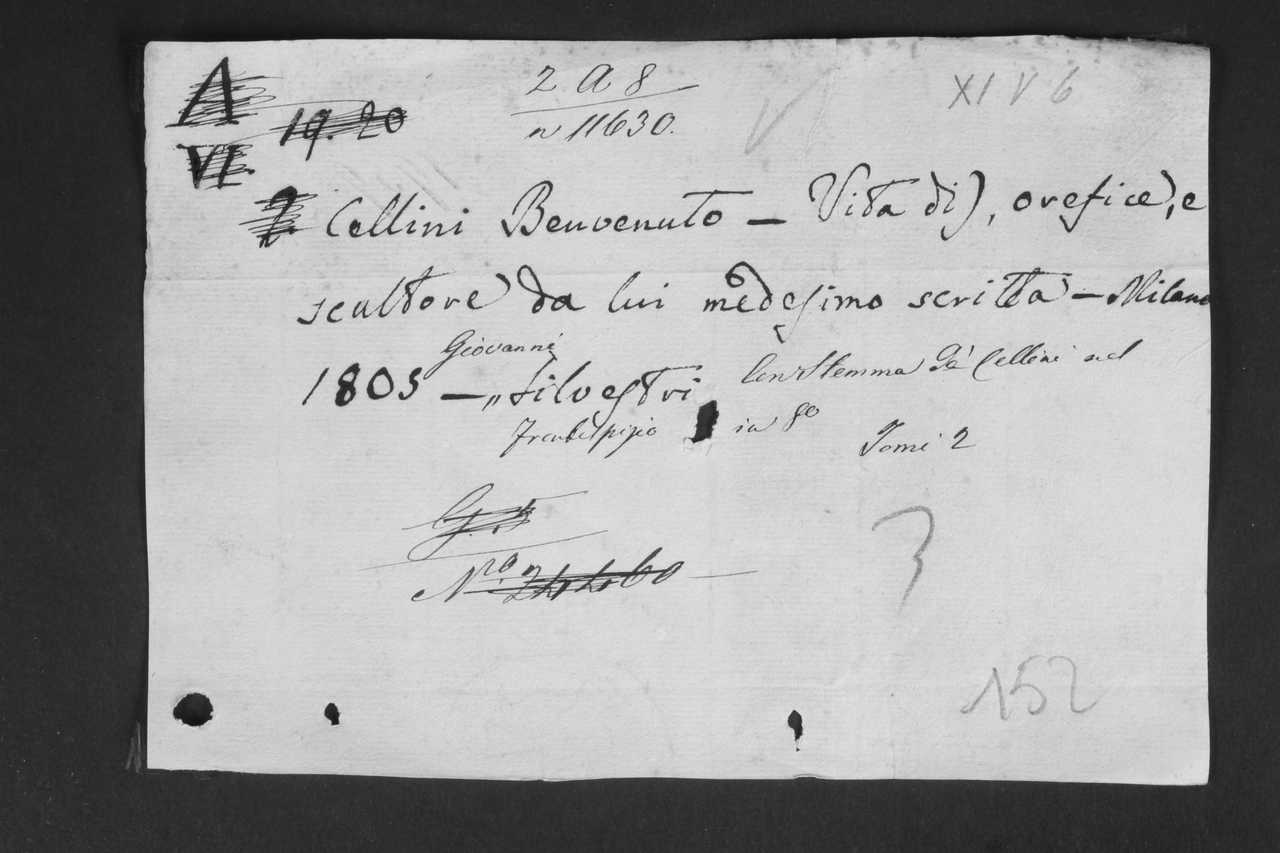 A
VI
7
19. 20
2 A 8
n 11630.
XI V 6
Cellini Benvenuto – Vita di), orefice, e
scultore da lui medesimo scritta – Milano
1805 – „ Giovanni Silvestri Con Stemma de' Cellini nel
Frontespizio in 8º Tomi 2
G. 5
Nro 24460
7
152